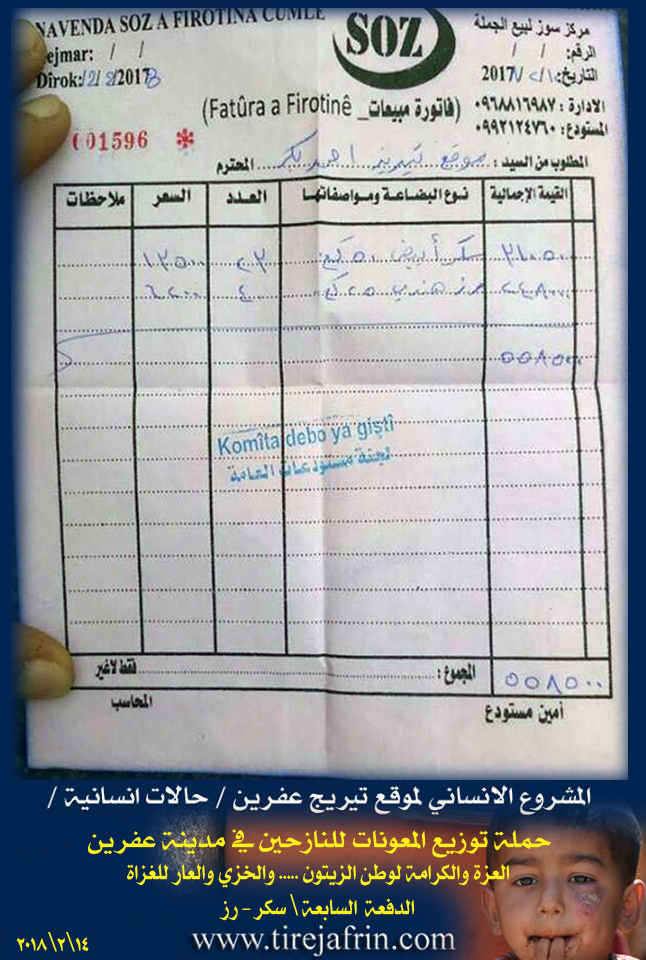 NAVENDA SOZ A FIROTINA CUMLE
ejmar: / /
Dîrok:12/2/2018
SOZ
مركز سوز لبيع الجملة
الرقم: / /
التاريخ: 2017
الادارة : ٠٩٦٨٨١٦٩٨٧
المستودع: ٠٩٩٢١٢٤٧٦٠
(Fatûra a Firotinê _ فاتورة مبيعات)
001596 *
المطلوب من السيد : موقع تيريز احمد بكر المحترم
القيمة الإجمالية نوع البضاعة ومواصفاتها العدد السعر ملاحظات
سكر أبيض ٥٠ كغ ١٣٥٠٠
رز هندي ٢٥ كغ ٤٠
٥٥٨٥٠٠
Komîta debo ya giştî
لجنة مستودعات العامة
المجموع : فقط لاغير
٥٥٨٥٠٠
أمين مستودع المحاسب
المشروع الانساني لموقع تيريج عفرين / حالات انسانية /
حملة توزيع المعونات للنازحين في مدينة عفرين
العزة والكرامة لوطن الزيتون ..... والخزي والعار للغزاة
الدفعة السابعة \ سكر - رز
٢٠١٨\٢\١٤
www.tirejafrin.com